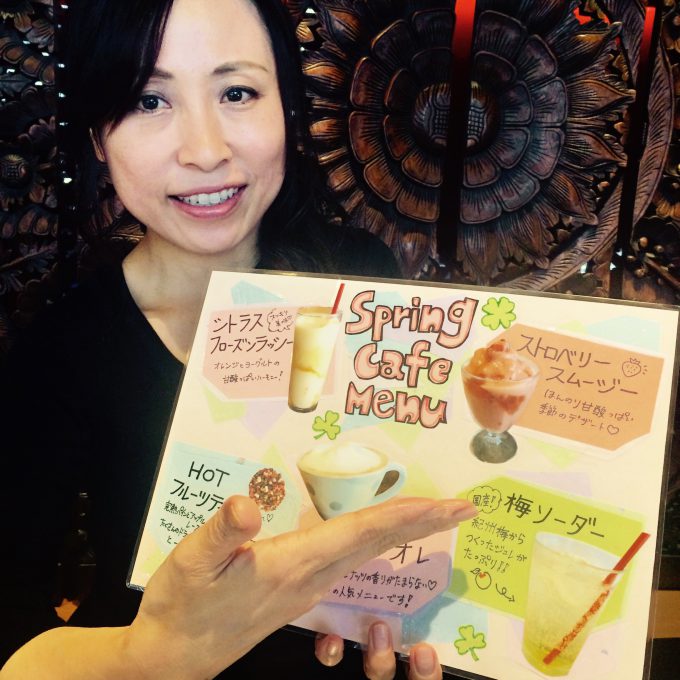 シトラス
フローズンラッシー
オレンジとヨーグルトの
甘酸っぱいハーモニー!
Spring
Cafe
Menu
ストロベリー
スムージー
ほんのり甘酸っぱい
季節のデザート♡
HOT
フルーツティ
オレ
ナッツの香りがたまらない♡
の人気メニューです!
国産!
梅ソーダー
紀州梅から
つくったジュレが
たっぷり♪♪